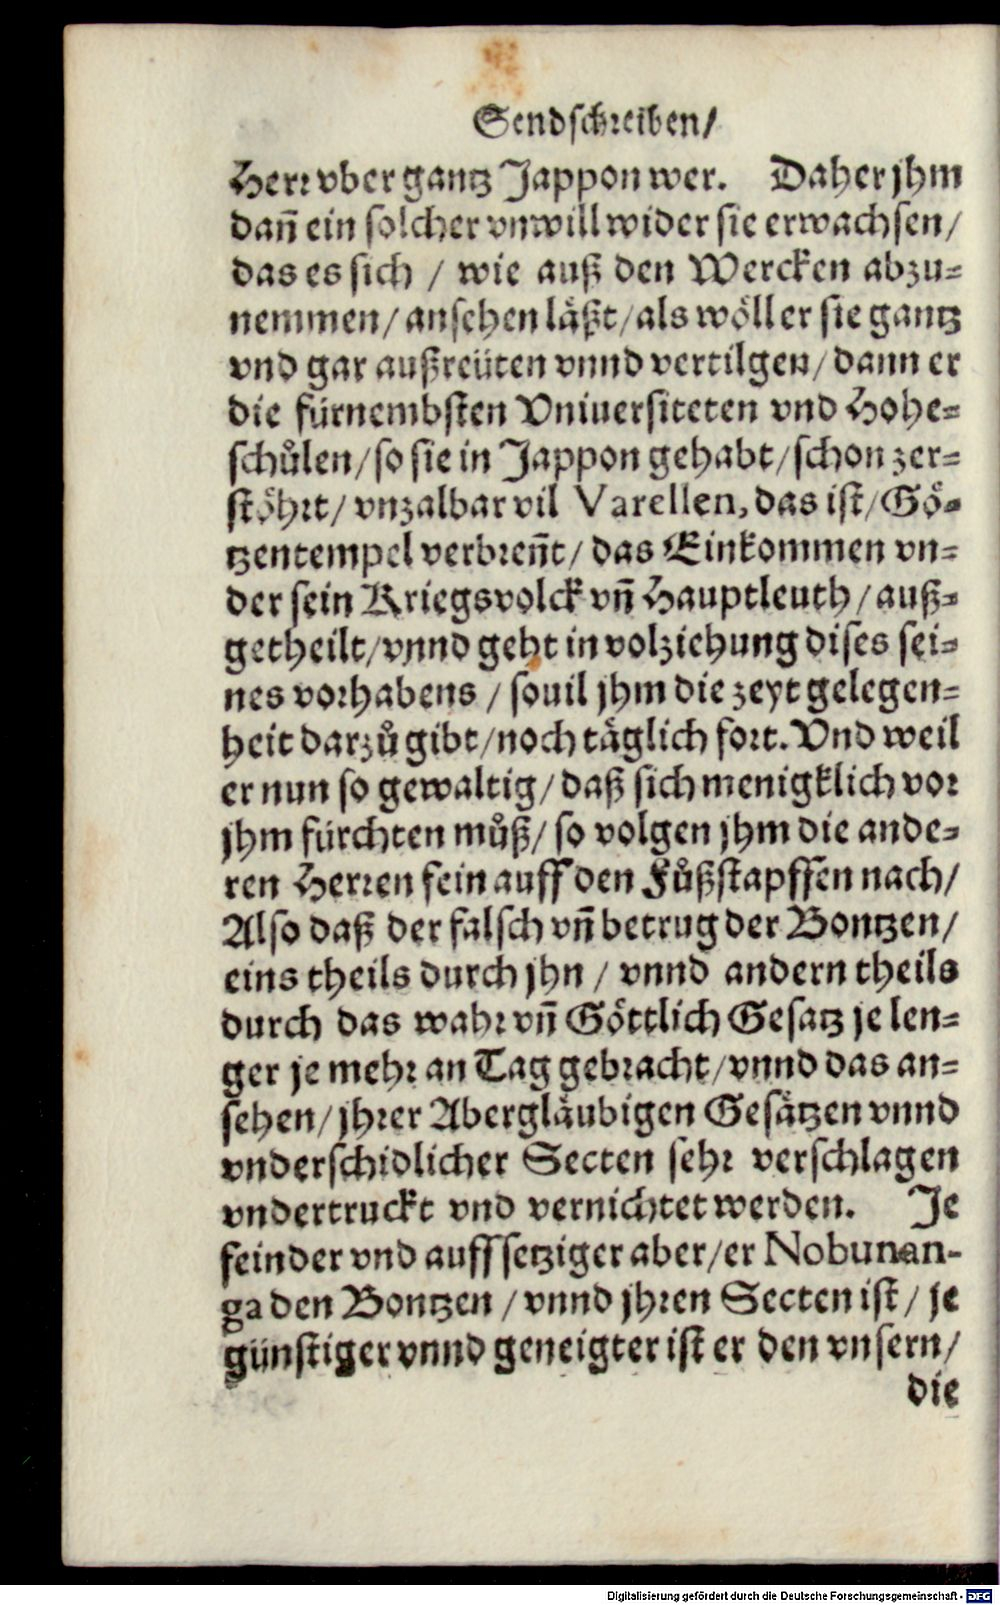 Sendschreiben/
Herr vber gantz Jappon wer. Daher jhm
dañ ein solcher vnwill wider sie erwachsen/
das es sich / wie auß den Wercken abzu-
nemmen/ ansehen läßt/ als wöll er sie gantz
vnd gar außreüten vnnd vertilgen/ dann er
die fürnembsten Vniuersiteten vnd Hohe-
schůlen/ so sie in Jappon gehabt/ schon zer-
stöhrt/ vnzalbar vil Varellen, das ist/ Gö-
tzentempel verbreñt/ das Einkommen vn-
der sein Kriegsvolck vñ Hauptleuth/ auß-
getheilt/ vnnd geht in volziehung dises sei-
nes vorhabens / souil jhm die zeyt gelegen-
heit darzů gibt/ noch täglich fort. Vnd weil
er nun so gewaltig/ daß sich menigklich vor
jhm fürchten můß/ so volgen jhm die ande-
ren Herren fein auff den Fůßstapffen nach/
Also daß der falsch vñ betrug der Bontzen/
eins theils durch jhn / vnnd andern theils
durch das wahr vñ Göttlich Gesatz je len-
ger je mehr an Tag gebracht/ vnnd das an-
sehen/ jhrer Abergläubigen Gesätzen vnnd
vnderschidlicher Secten sehr verschlagen
vndertruckt vnd vernichtet werden. Je
feinder vnd auffsetziger aber/ er Nobunan-
ga den Bontzen / vnnd jhren Secten ist/ je
günstiger vnnd geneigter ist er den vnsern/
die
Digitalisierung gefördert durch die Deutsche Forschungsgemeinschaft - DFG